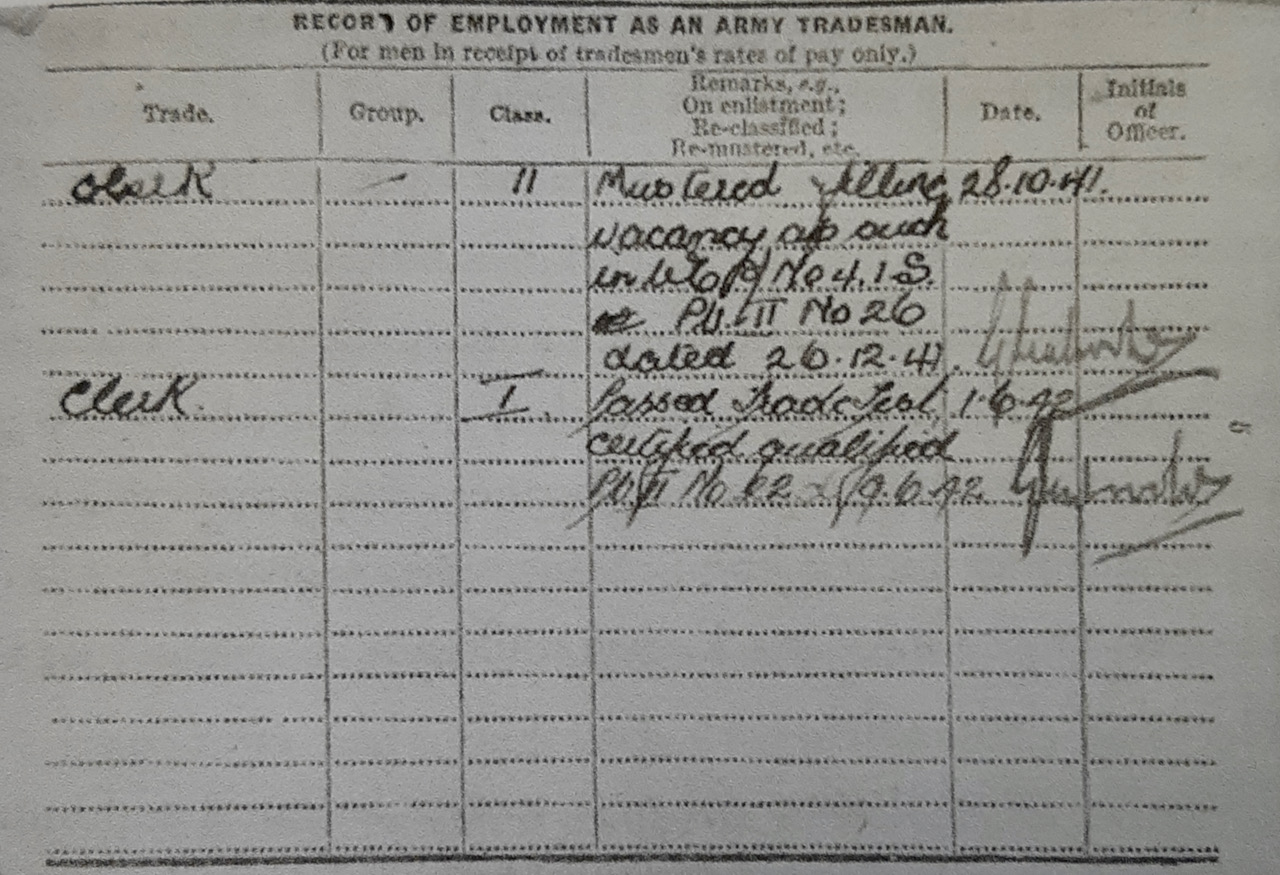 RECORD OF EMPLOYMENT AS AN ARMY TRADESMAN.
(For men in receipt of tradesmen's rates of pay only.)
Trade. Group. Class. Remarks, e.g., On enlistment; Re-classified; Re-mustered, etc. Date. Initials of Officer.
Clerk — II Mustered filling 28.10.41.
vacancy as such
in No 4.1.S.
Pt. II No 26
dated 26.12.41.
Clerk. I. Passed Trade Test 1.6.42
certified qualified
Pt. II No 19.6.42